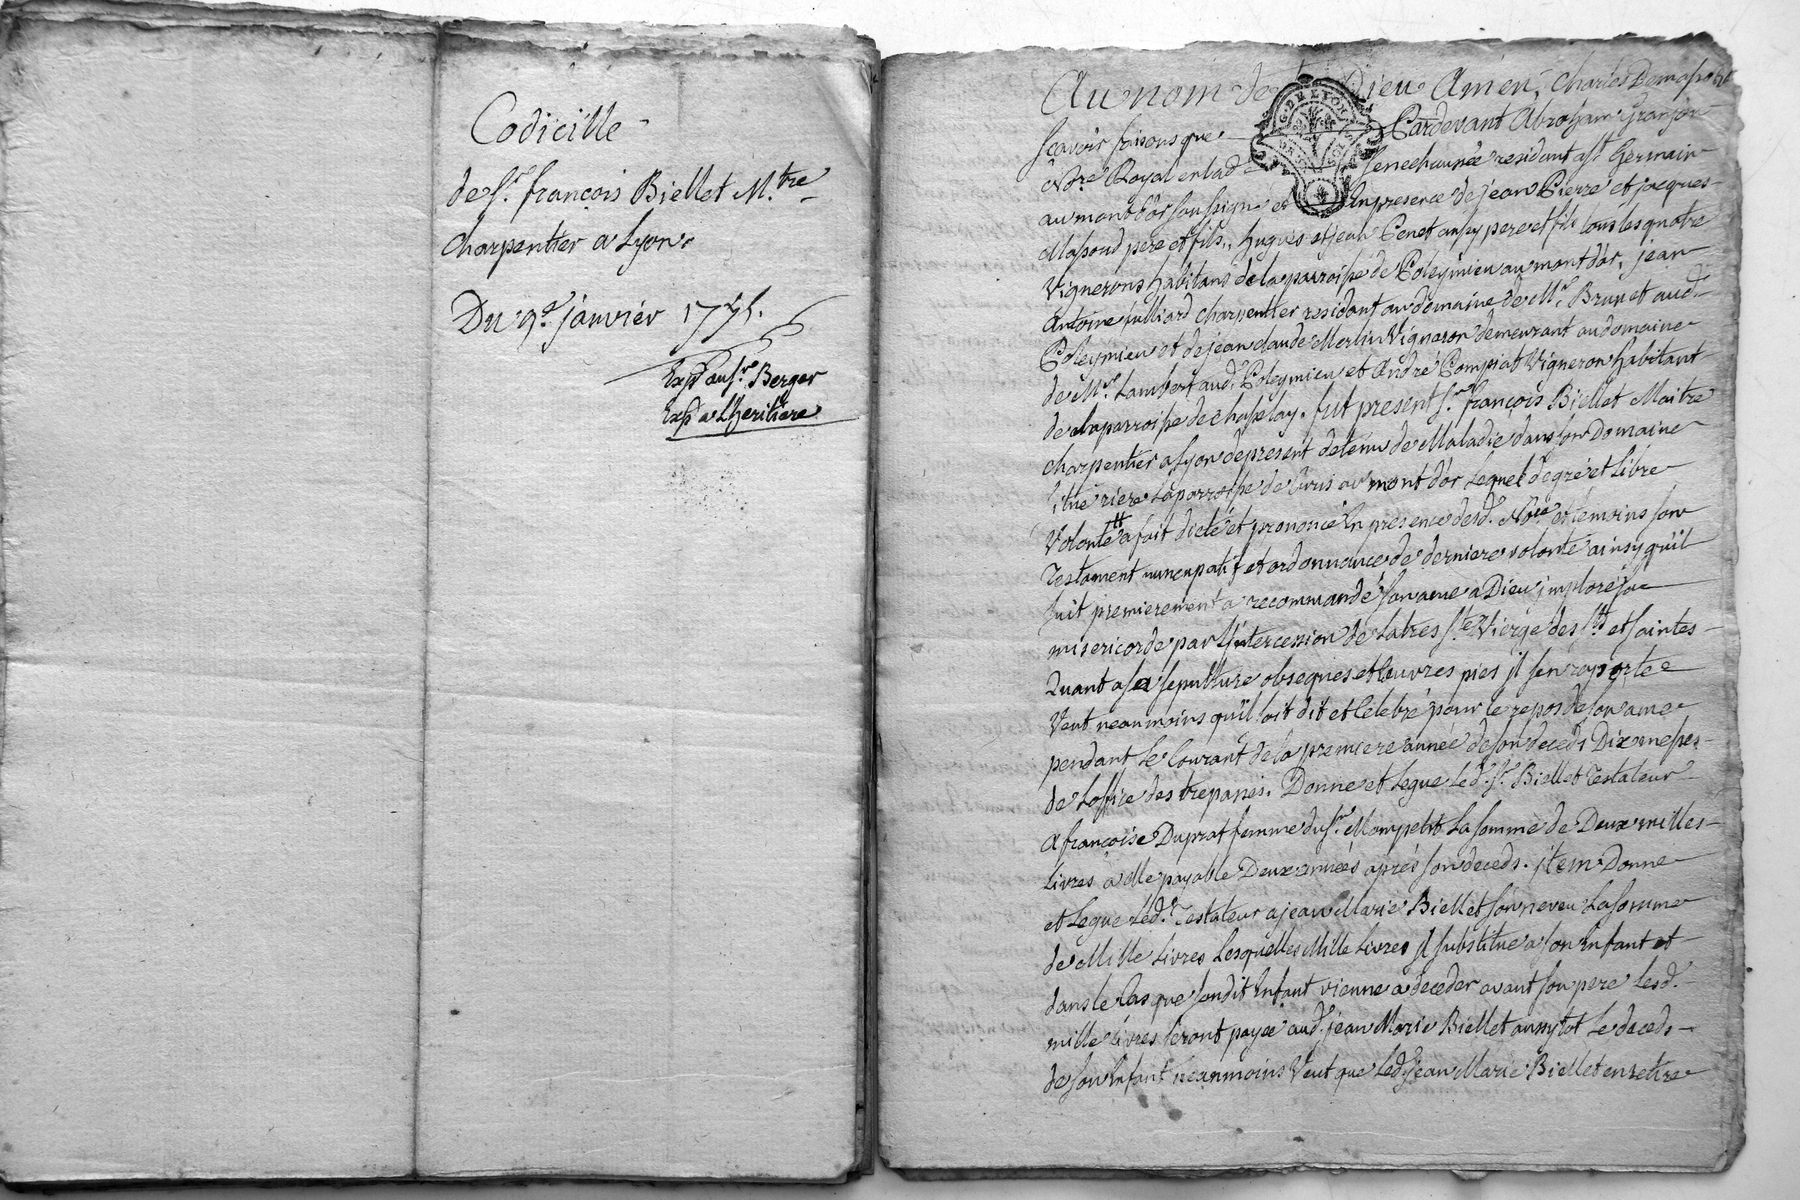 Codicille
de Sr. françois Biellet M.tre
Charpentier a Lyon.
Du 9e. janvier 1775.
Exp.é au Sr. Berger
Exp.é a L'heritiere
Au nom de Dieu Amen, Charles
scavoir faisons que Pardevant Abraham Granjon
No.re Royal en lad. Senechaussée residant a St Germain
au mont d'or soussigné et En presence de jean Pierre et jacques
Massoud pere et fils, hugues et jean Penet aussy pere et fils tous les quatre
Vignerons habitans de la parroisse de Poleymieu au mont d'or, jean
Antoine julliard charpentier residant au domaine de Mr. Brun et aud.
Poleymieu et de jean claude Merlin Vigneron demeurant au domaine
de Mr. Lambert aud. Poleymieu et André Compiat Vigneron habitant
de la parroisse de chasselay. fut present Sr. françois Biellet Maitre
charpentier a Lyon de present detenu de Maladie dans son Domaine
situé riere la parroisse de Curis au mont d'or Lequel de gré et Libre
Volonté a fait dicté et prononcé En presence desd. No.re et temoins son
Testament nuncupatif et ordonnance de derniere volonté ainsy qu'il
suit premierement a recommandé son ame a Dieu, imploré sa
misericorde par L'intercession de La tres Ste Vierge des Sts et saintes
Quant a sa sepulture obseques et Œuvres pies il s'en raporte
Veut neanmoins qu'il soit dit et Celebré pour le repos de son ame
pendant Le Courant de la premiere année de son deceds Dix messes
de Loffice des trepassés. Donne et Legue Led. Sr. Biellet Testateur
A françoise Duprat femme du Sr. Mompetit La somme de Deux milles
Livres a elle payable Deux années aprés son deceds. item Donne
et Legue Led. Testateur a jean Marie Biellet son neveu La somme
de Mille Livres Lesquelles Mille Livres il substitue a son Enfant et
dans le Cas que sondit Enfant vienne a deceder avant son pere Lesd.
mille Livres seront payée aud. jean Marie Biellet aussytot Le deceds
de son Enfant neanmoins Veut que Led. jean Marie Biellet en retire